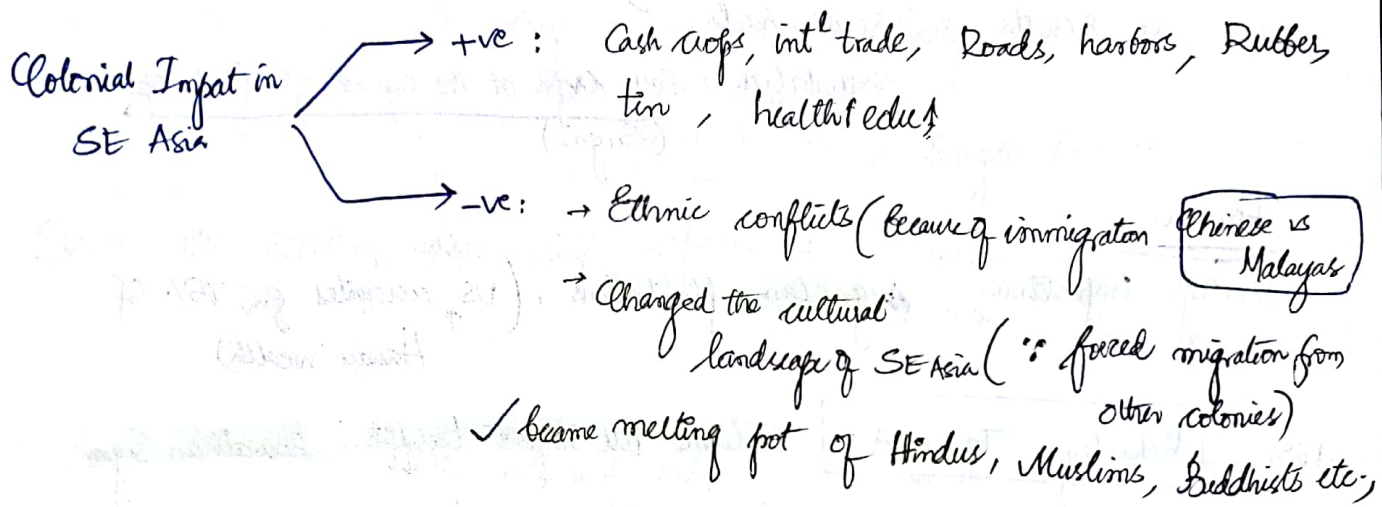 Colonial Impat in
SE Asia
+ve : Cash crops, intl trade, Roads, harbors, Rubber,
tin, health & edu ↑
-ve : → Ethnic conflicts (because of immigration Chinese vs
Malayas
→ Changed the cultural
landscape of SE Asia (∵ forced migration from
other colonies)
✓ became melting pot of Hindus, Muslims, Buddhists etc.,